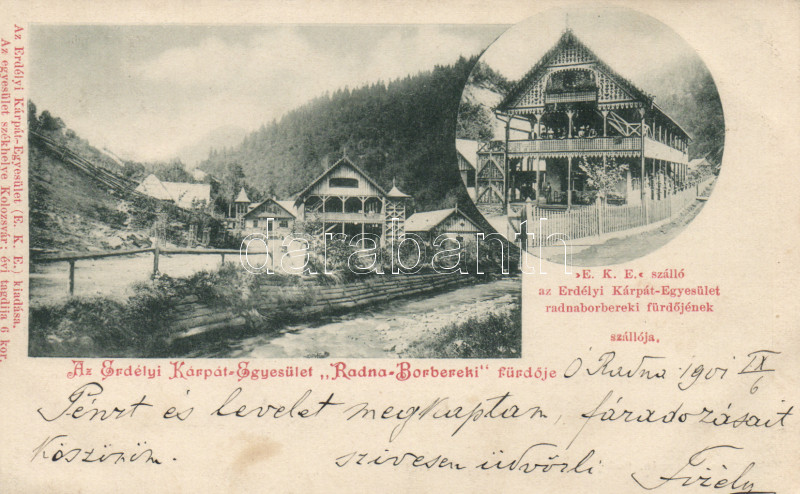 Az Erdélyi Kárpát-Egyesület (E. K. E.) kiadása.
Az egyesület székhelye Kolozsvár; évi tagdíja 6 kor.
darabanth
»E. K. E.« szálló
az Erdélyi Kárpát-Egyesület
radnaborbereki fürdőjének
szállója.
Az Erdélyi Kárpát-Egyesület „Radna-Borbereki" fürdője
Ó Radna 1901 IX/6
Pénzt és levelet megkaptam, fáradozásait
köszönöm. szivesen üdvözli